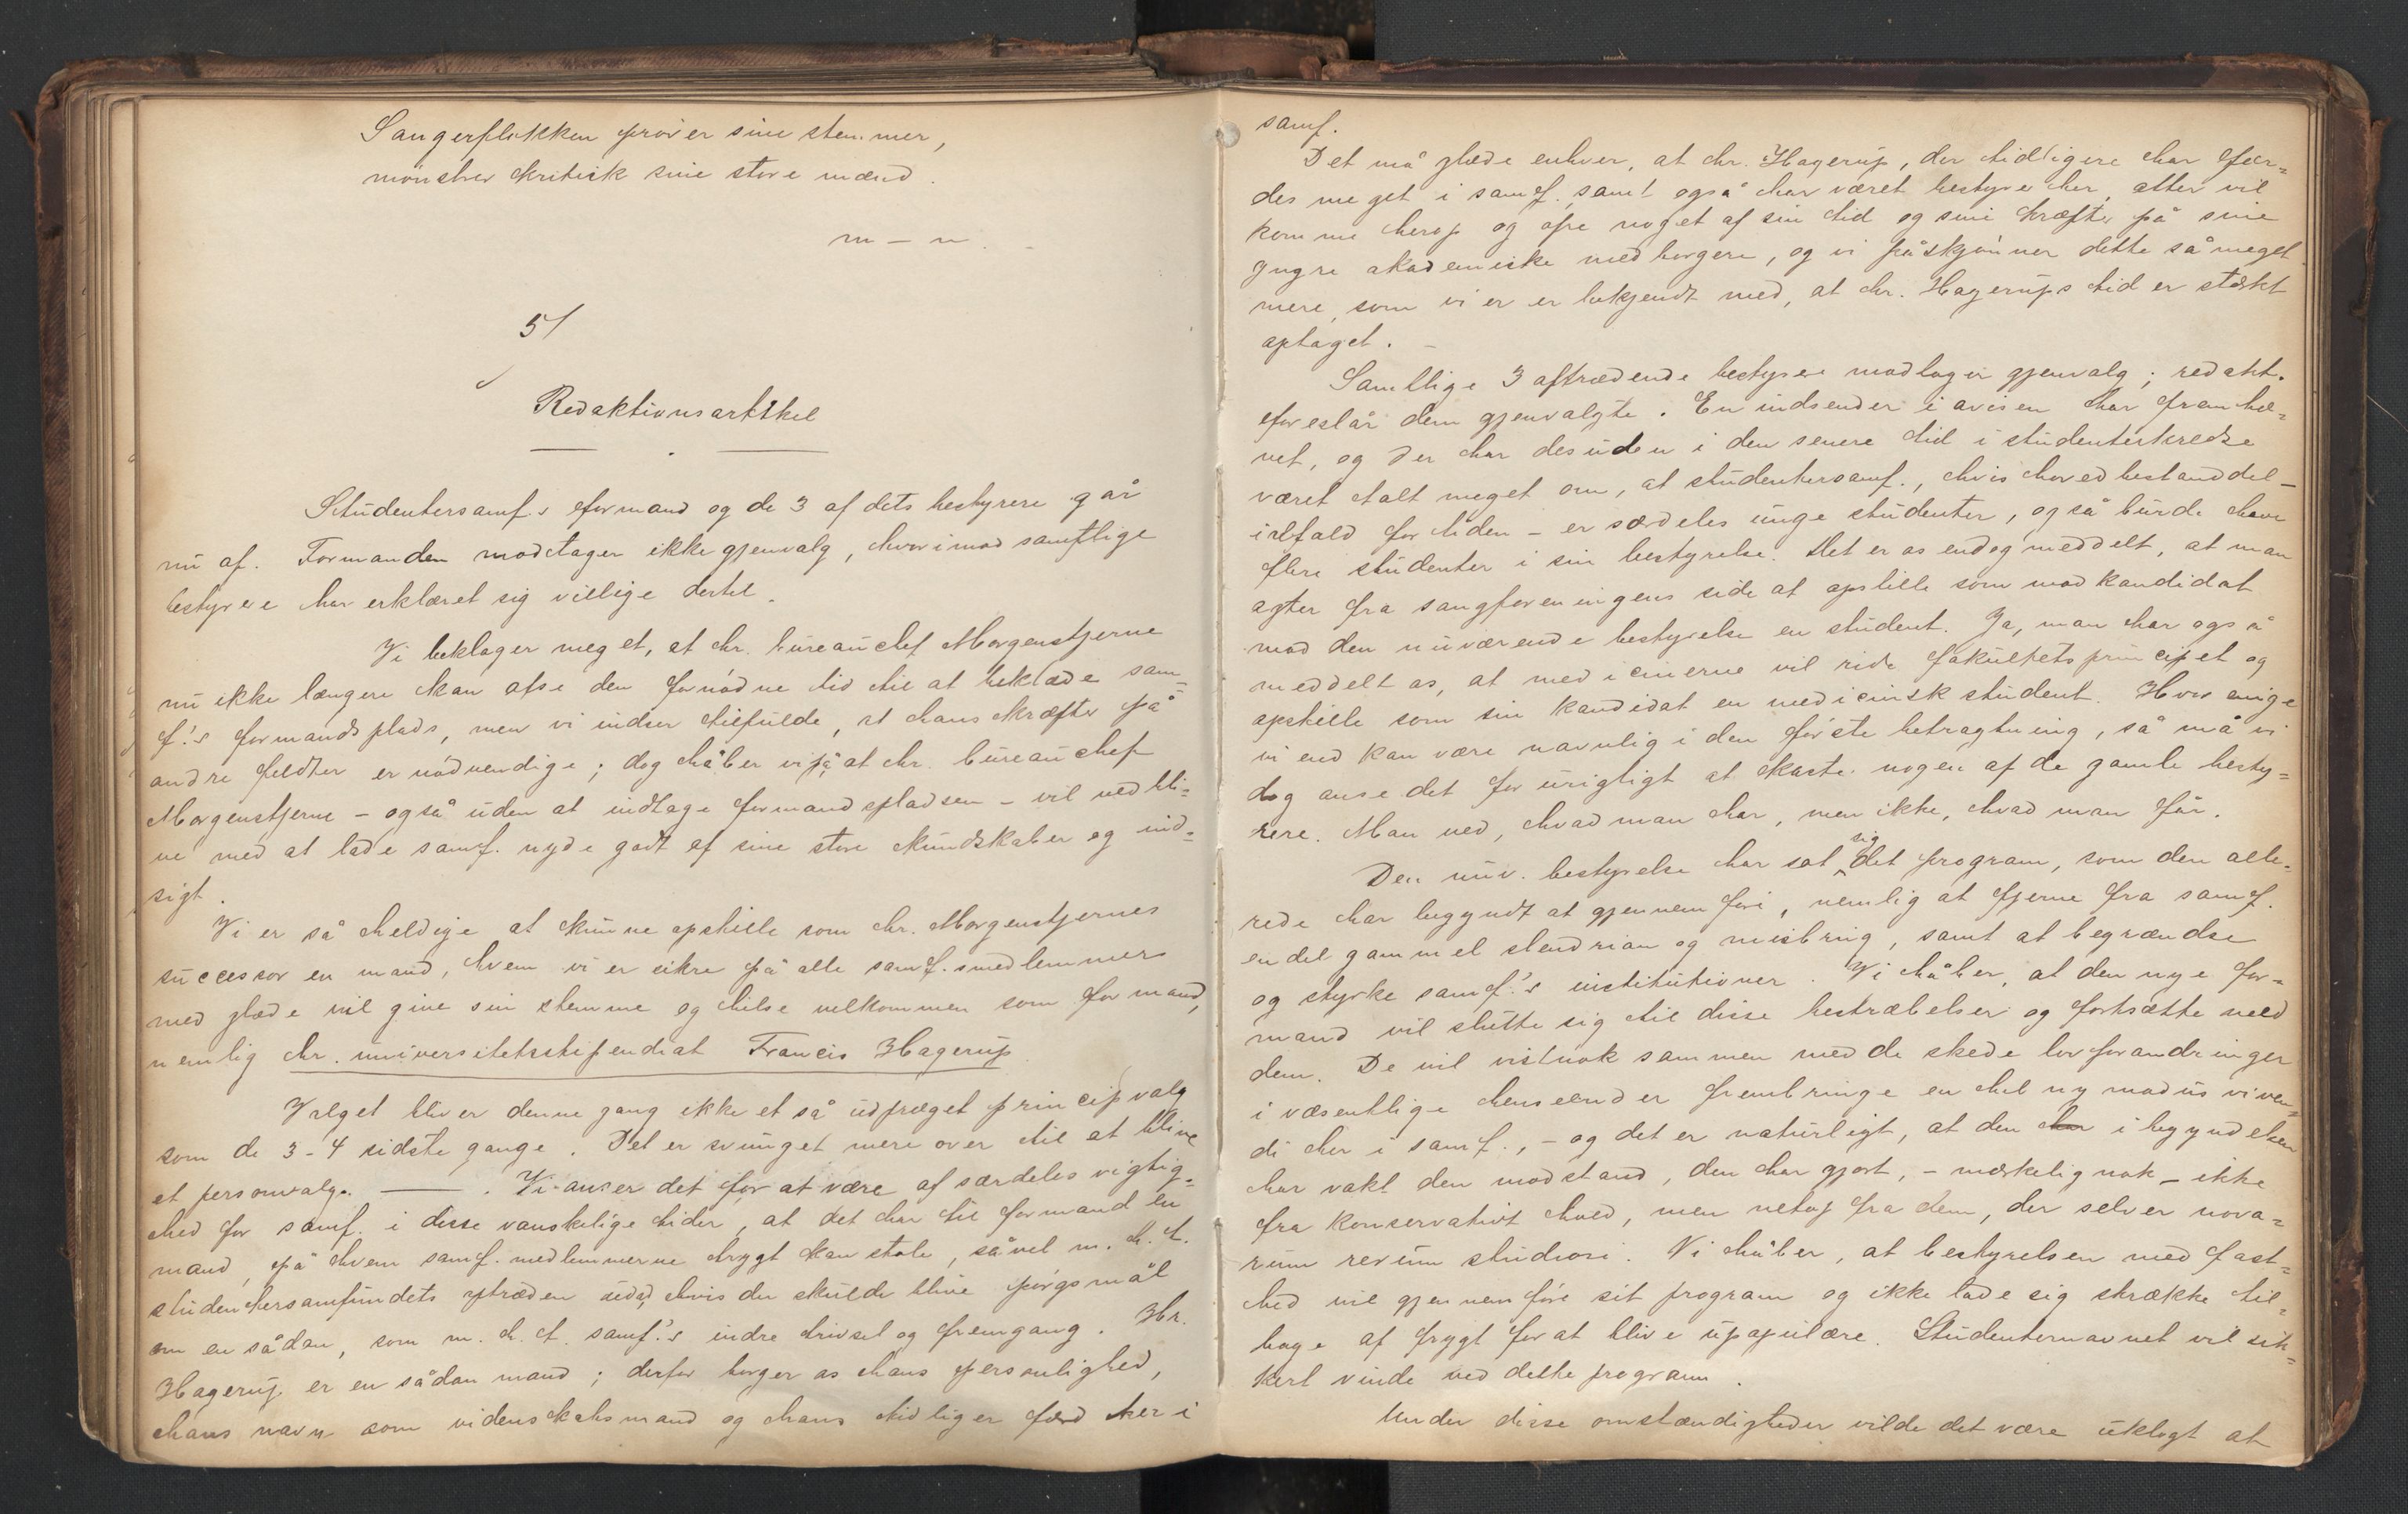 Sangerflokken prøver sine stemmer,
mønstrer kritisk sine store mænd.
m – n. –
5/
Redaktionsartikel
Studentersamf.s formand og de 3 af dets bestyrere går
nu af. Formanden modtager ikke gjenvalg, hvorimod samtlige
bestyrere har erklæret sig villige dertil.
Vi beklager meget, at hr. bureauchef Morgenstjerne
nu ikke længere kan afse den fornødne tid til at beklæde sam-
f.'s formandsplads, men vi indser tilfulde, at hans kræfter på
andre feldter er nødvendige; dog håber vi på, at hr. bureauchef
Morgenstjerne – også uden at indtage formandspladsen – vil vedbli-
ve med at lade samf. nyde godt af sine store kundskaber og ind-
sigt.
Vi er så heldige at kunne opstille som hr. Morgenstjernes
successor en mand, hvem vi er sikre på alle samf.smedlemmers
med glæde vil give sin stemme og hilse velkommen som formand,
nemlig hr. universitetsstipendiat Francis Hagerup.
Valget bliver denne gang ikke et så udpræget principvalg
som de 3-4 sidste gange. Det er svunget mere over til at blive
et personvalg. —— . Vi anser det for at være af særdeles vigtig-
hed for samf. i disse vanskelige tider, at det har til formand en
mand, på hvem samf.medlemmerne trygt kan stole, såvel m. h. t.
studentersamfundets optræden udad, hvis der skulde blive spørgsmål
om en sådan, som m. h. t. samf.'s indre trivsel og fremgang. Hr.
Hagerup er en sådan mand; derfor borger os hans personlighed,
hans navn som videnskabsmand og hans tidligere færd her i
samf.
Det må glæde enhver, at hr. Hagerup, der tidligere har fær-
des meget i samf. samt også har været bestyrer her, atter vil
komme herop og ofre noget af sin tid og sine kræfter på sine
yngre akademiske medborgere, og vi påskjønner dette så meget
mere, som vi er er bekjendt med, at hr. Hagerups tid er stærkt
optaget. –
Samtlige 3 aftrædende bestyrere modtager gjenvalg; redakt.
foreslår dem gjenvalgte. En indsender i avisen har fremhæ-
vet, og der har desuden i den senere tid i studenterkredse
været talt meget om, at studentersamf., hvis hovedbestanddel –
ialfald for tiden – er særdeles unge studenter, også burde have
flere studenter i sin bestyrelse. Det er os endog meddelt, at man
agter fra sangforeningens side at opstille som modkandidat
mod den nuværende bestyrelse en student. Ja, man har også
meddelt os, at medicinerne vil ride fakultetsprincipet og
opstille som sin kandidat en medicinsk student. Hvor enige
vi end kan være navnlig i den første betragtning, så må vi
dog anse det for urigtigt at kaste nogen af de gamle besty-
rere. Man ved, hvad man har, men ikke, hvad man får.
Den nuv. bestyrelse har sat sig det program, som den alle-
rede har begyndt at gjennemføre, nemlig at fjerne fra samf.
en del gammel slendrian og misbrug, samt at begrændse
og styrke samf.'s institutioner. Vi håber, at den nye for-
mand vil slutte sig til disse bestræbelser og fortsætte med
dem. De vil vistnok sammen med de skede lovforandringer
i væsentlige henseender frembringe en hel ny modus viven-
di her i samf., – og det er naturligt, at den har i begyndelsen
har vakt den modstand, den har gjort, – mærkelig nok – ikke
fra konservativt hold, men netop fra dem, der selv er nova-
rum rerum studiosi. Vi håber, at bestyrelsen med fast-
hed vil gjennemføre sit program og ikke lade sig skrække til-
bage af frygt for at blive upopulære. Studenternavnet vil sik-
kert vinde ved dette program.
Under disse omstændigheder vilde det være uklogt at